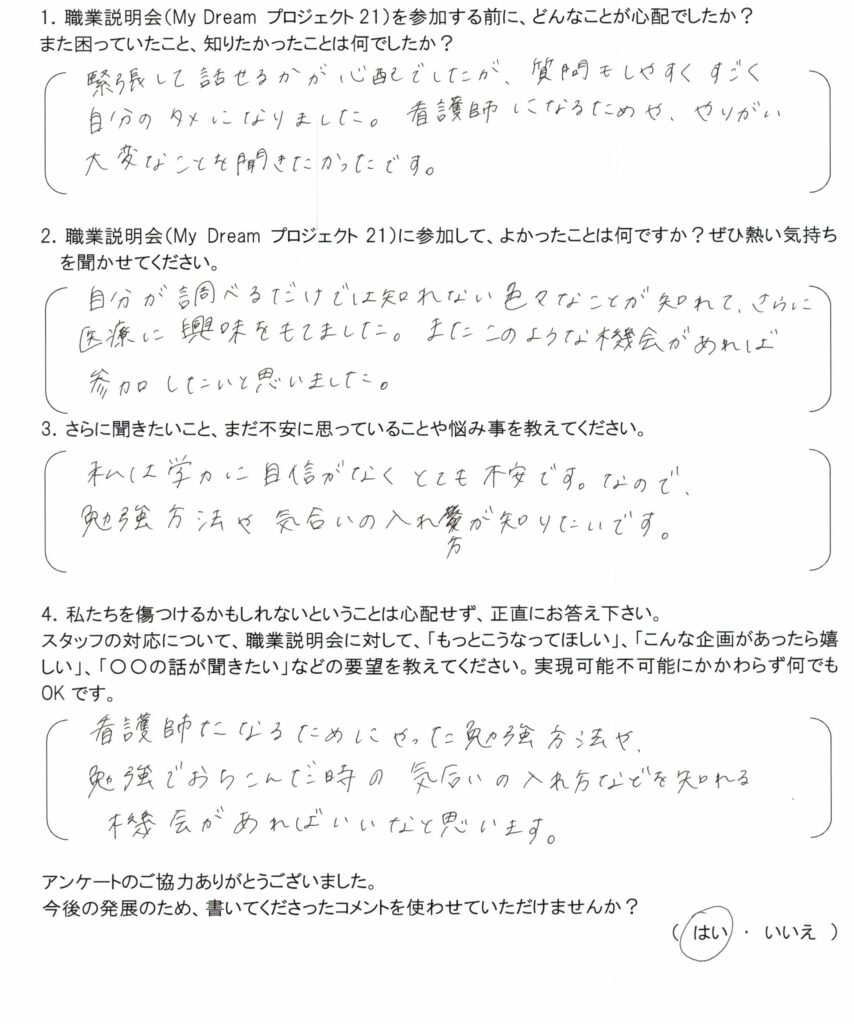 1. 職業説明会(My Dream プロジェクト21)を参加する前に、どんなことが心配でしたか?
また困っていたこと、知りたかったことは何でしたか?
緊張して話せるかが心配でしたが、質問もしやすくすごく
自分のタメになりました。看護師になるためや、やりがい
大変なことを聞きたかったです。
2. 職業説明会(My Dream プロジェクト21)に参加して、よかったことは何ですか?ぜひ熱い気持ち
を聞かせてください。
自分が調べるだけでは知れない色々なことが知れて、さらに
医療に興味をもてました。またこのような機会があれば
参加したいと思いました。
3. さらに聞きたいこと、まだ不安に思っていることや悩み事を教えてください。
私は学力に自信がなくとても不安です。なので、
勉強方法や気合いの入れ方が知りたいです。
4. 私たちを傷つけるかもしれないということは心配せず、正直にお答え下さい。
スタッフの対応について、職業説明会に対して、「もっとこうなってほしい」、「こんな企画があったら嬉
しい」、「〇〇の話が聞きたい」などの要望を教えてください。実現可能不可能にかかわらず何でも
OKです。
看護師になるためにやった勉強方法や、
勉強でおちこんだ時の気合いの入れ方などを知れる
機会があればいいなと思います。
アンケートのご協力ありがとうございました。
今後の発展のため、書いてくださったコメントを使わせていただけませんか?
( はい ・ いいえ )